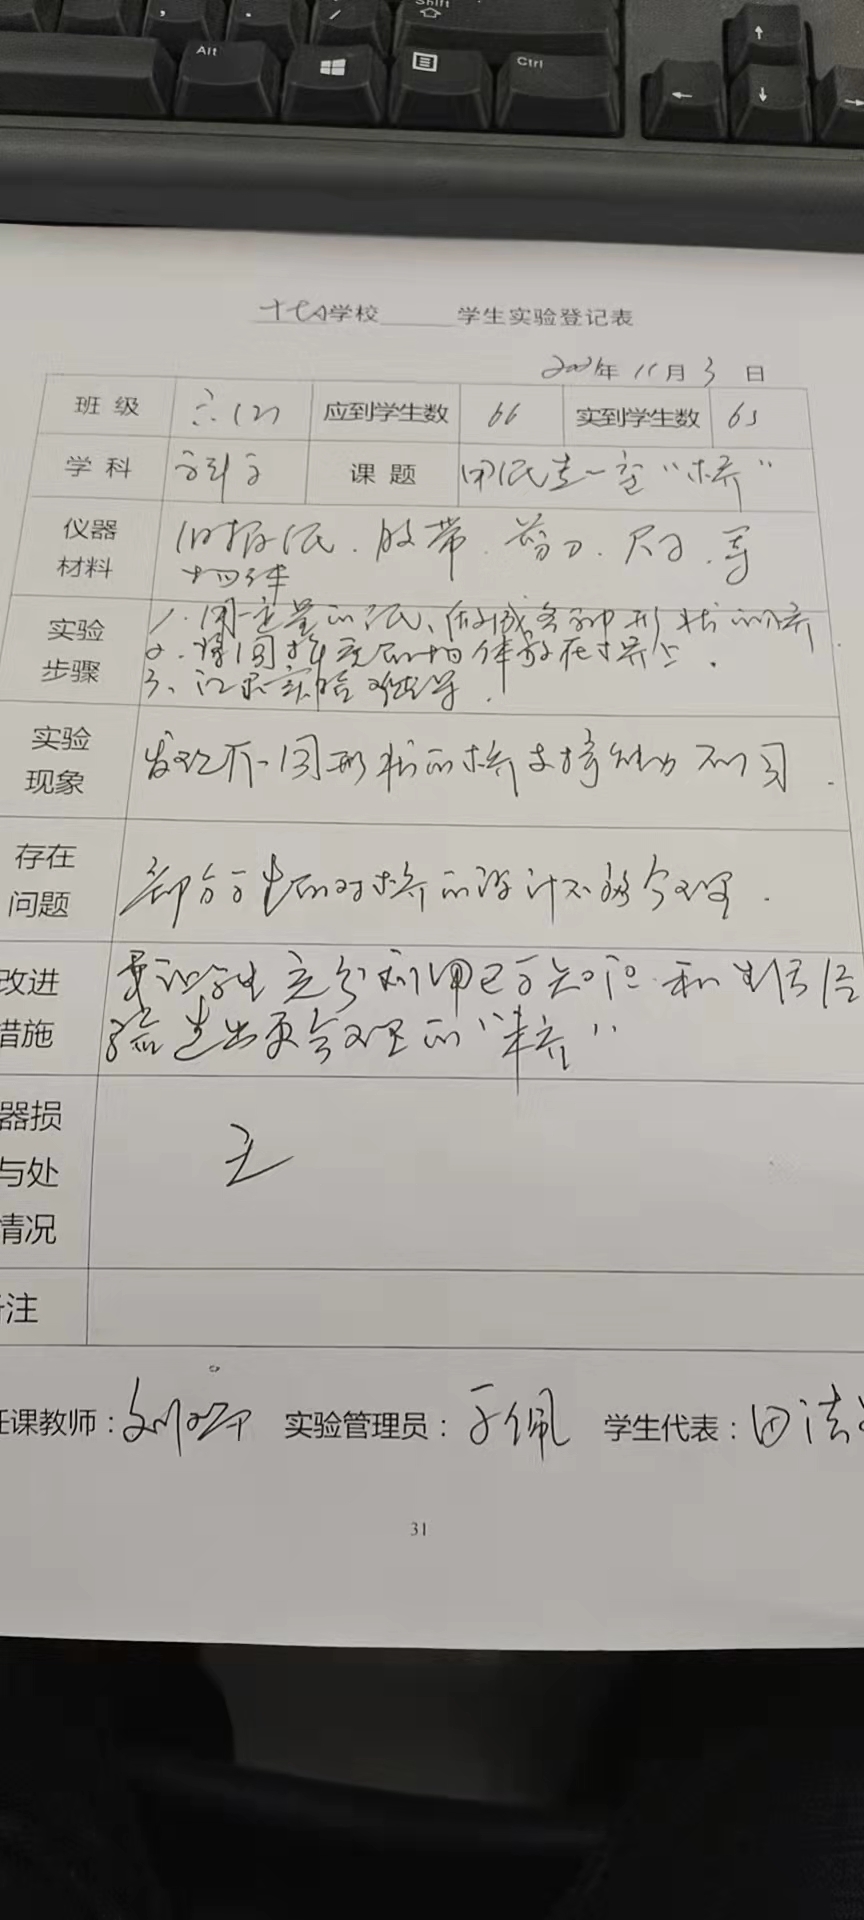 Shift
Alt
Ctrl
十七小学校 学生实验登记表
年 11月 3 日
班 级 六(2) 应到学生数 66 实到学生数
学 科 科学 课 题 用纸造一座“桥”
仪器材料 旧报纸、胶带、剪刀、尺子、等
物体
实验步骤 1、用一定量的纸、做成各种形状的桥
2、将同样重的物体放在桥上.
3、记录实验
实验现象 发现不同形状的桥支撑能力不同.
存在问题 部分学生的对桥的设计不够合理.
改进措施 要让学生充分利用已有知识和生活经
验造出更合理的“桥”
器损
与处
情况
无
注
任课教师: 实验管理员: 于佩 学生代表: 田洁
31